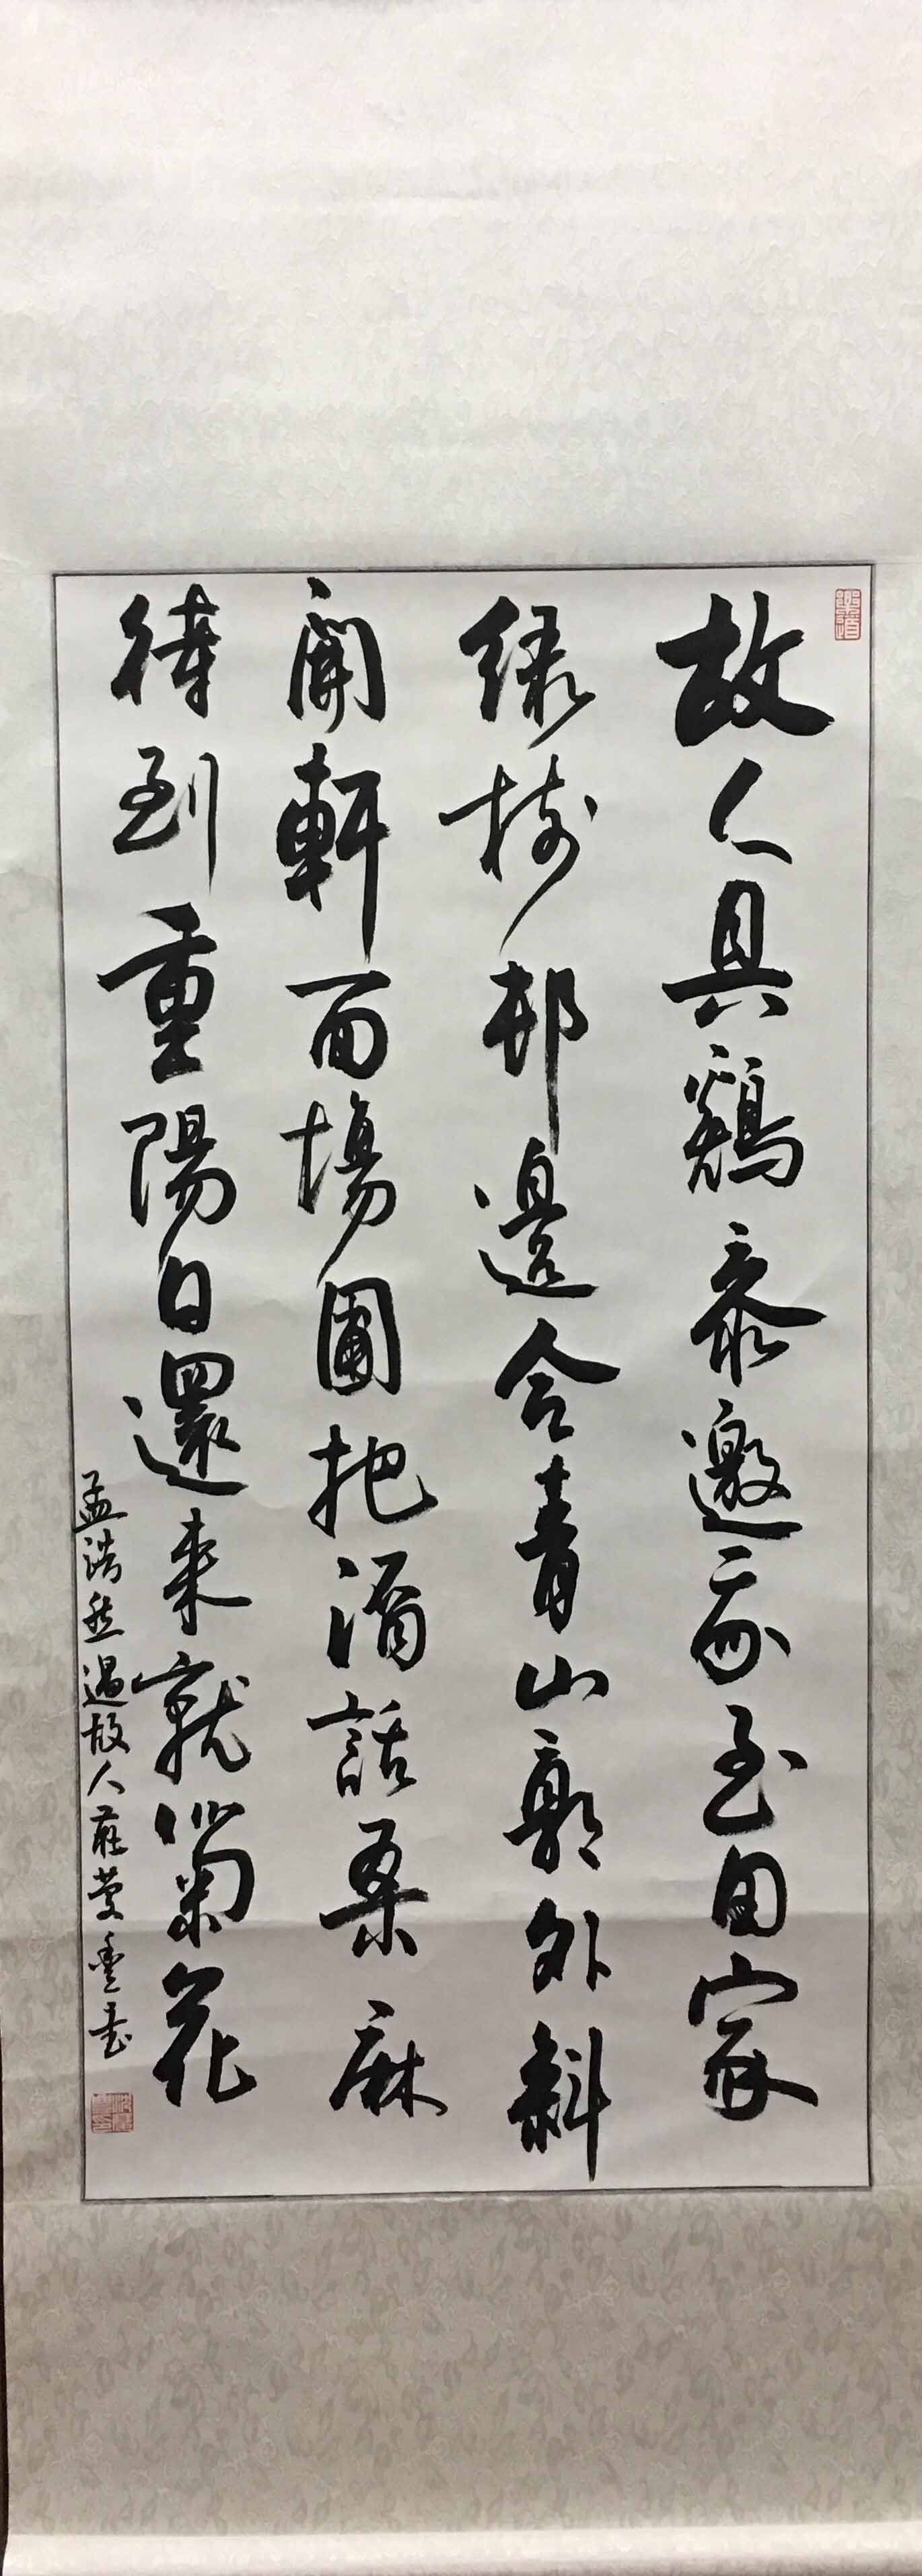 故人具鷄黍邀我至田家
綠樹邨邊合青山郭外斜
開軒面場圃把酒話桑麻
待到重陽日還來就菊花
孟浩然過故人莊